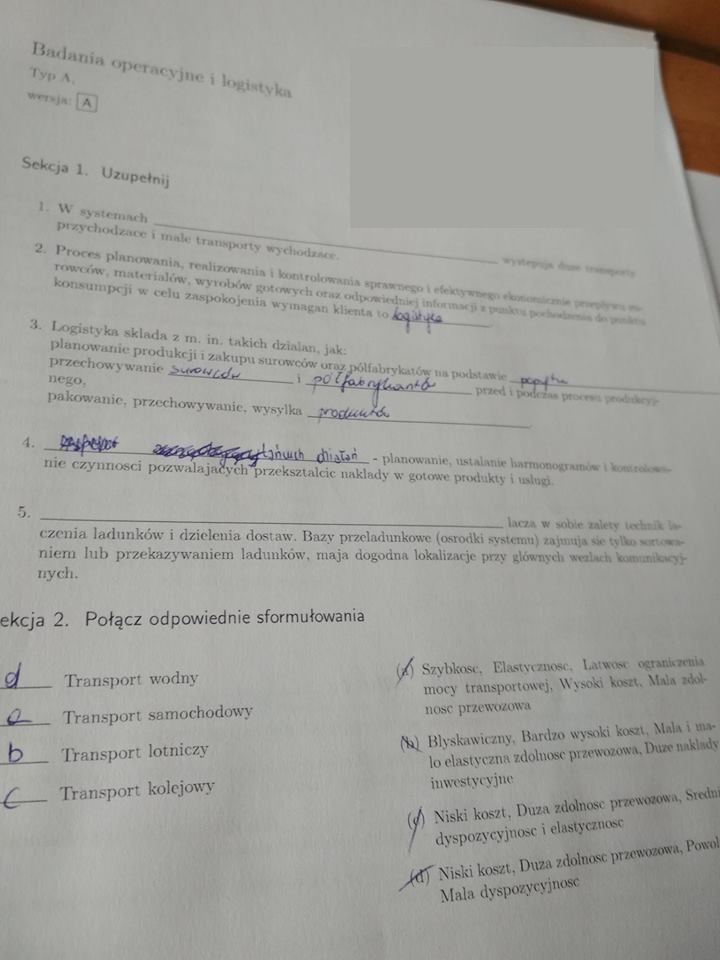 Badania operacyjne i logistyka
Typ A,
wersja: A
Sekcja 1. Uzupełnij
1. W systemach ______ wystepuja duze transporty
przychodzace i male transporty wychodzace.
2. Proces planowania, realizowania i kontrolowania sprawnego i efektywnego ekonomicznie przeplywu su-
rowców, materialów, wyrobów gotowych oraz odpowiedniej informacji z punktu pochodzenia do punktu
konsumpcji w celu zaspokojenia wymagan klienta to logistyka.
3. Logistyka sklada z m. in. takich dzialan, jak:
planowanie produkcji i zakupu surowców oraz pólfabrykatów na podstawie popytu
przechowywanie surowców i półfabrykantó przed i podczas procesu produkcyj-
nego,
pakowanie, przechowywanie, wysylka produktów
4. działań - planowanie, ustalanie harmonogramów i kontrolowa-
nie czynnosci pozwalajacych przeksztalcic naklady w gotowe produkty i uslugi.
5. ______ lacza w sobie zalety technik la-
czenia ladunków i dzielenia dostaw. Bazy przeladunkowe (osrodki systemu) zajmuja sie tylko sortowa-
niem lub przekazywaniem ladunków, maja dogodna lokalizacje przy glównych wezlach komunikacyj-
nych.
ekcja 2. Połącz odpowiednie sformułowania
d Transport wodny
a Transport samochodowy
b Transport lotniczy
c Transport kolejowy
(a) Szybkosc, Elastycznosc, Latwosc ograniczenia
mocy transportowej, Wysoki koszt, Mala zdol-
nosc przewozowa
(b) Blyskawiczny, Bardzo wysoki koszt, Mala i ma-
lo elastyczna zdolnosc przewozowa, Duze naklady
inwestycyjne
(c) Niski koszt, Duza zdolnosc przewozowa, Sredni
dyspozycyjnosc i elastycznosc
(d) Niski koszt, Duza zdolnosc przewozowa, Powol
Mala dyspozycyjnosc